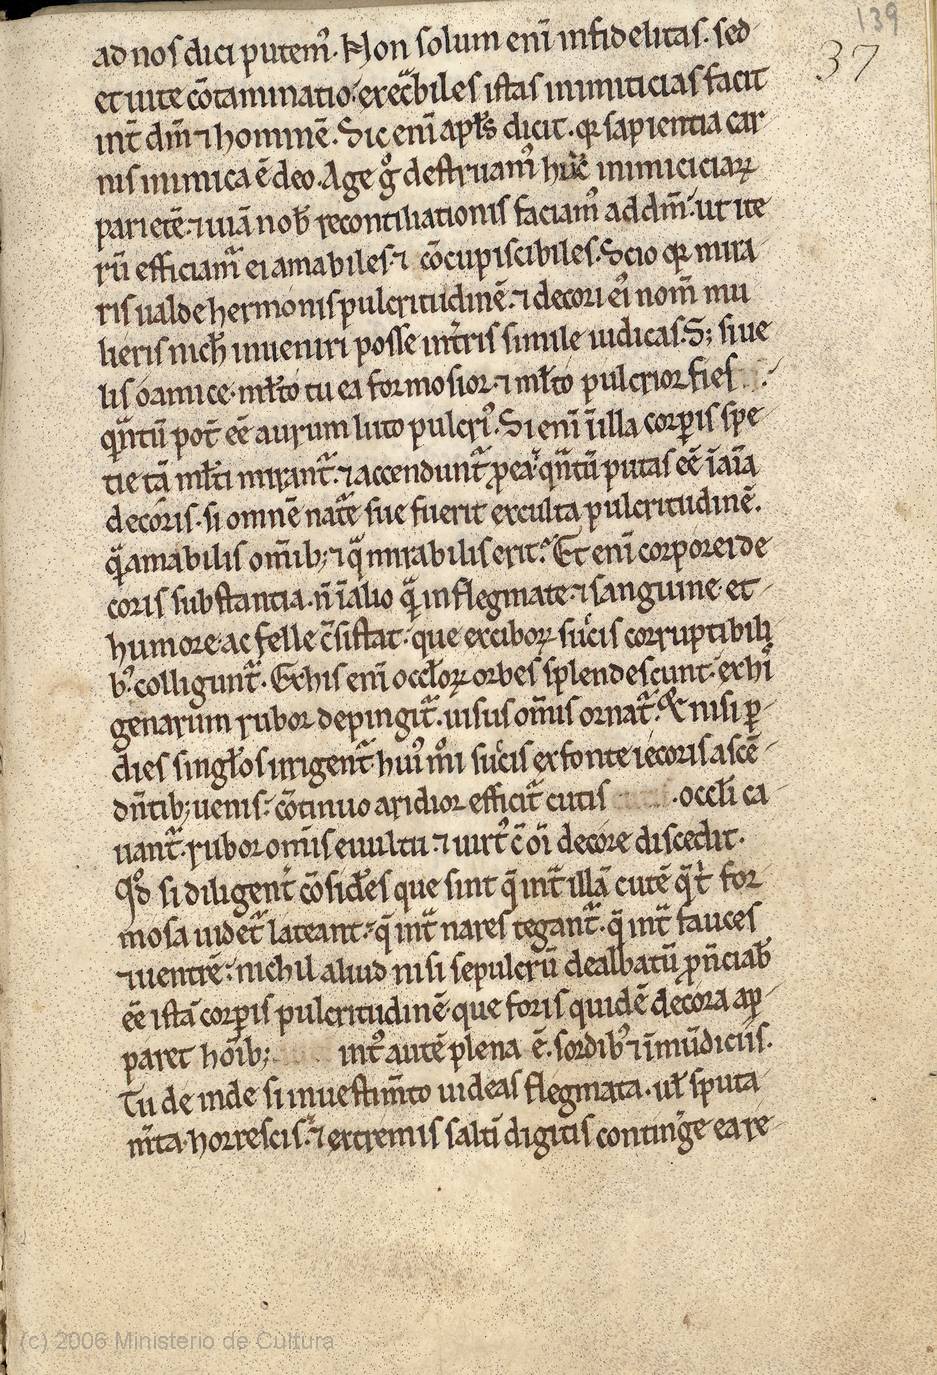 139
37
ad nos dici putem᷒. Non solum eni̅ infidelitas. sed
et uite co̅taminatio. execͣbiles istas inimiticias facit
int̅ dm̅ ⁊ homine̅. Sic eni̅ apl̅s dicit. qꝛ sapientia car
nis inimica e̅ deo. Age gͦ destruam᷒ huic̅ inimiciciaꝝ
pariete̅. ⁊ uia̅ nob̅ reconciliationis faciam᷒ ad dm̅. ut ite
ru̅ efficiam̅ ei amabiles. ⁊ co̅cupiscibiles. Scio qꝛ mira
ris ualde hermonis pulcritudine̅. ⁊ decori ei᷒ nom̅ mu
lieris nich̅ inueniri posse int̅ris simile iudicas. S; si ue
lis o amice. ml̅to tu ea formosior. ⁊ ml̅to pulcrior fies
qͣntu̅ pot̅ ee̅ aurum luto pulcri᷒. Si eni̅ i̅ illa corꝑis spe
tie ta̅ ml̅ti mirant̅. ⁊ accendunt̅ ꝑ ea. qͣntu̅ putas ee̅ i̅ ai̅a
decoris. si omne̅ nat̅e sue fuerit exculta pulcritudine̅.
qͣ̅ amabilis om̅ib; ⁊ qͣ̅ mirabilis erit. Et eni̅ corporei de
coris substantia. n̅ i̅ alio qͣ̅ in flegmate. ⁊ sanguine. et
humore. ac felle c̅sistat. que ex ciboꝝ suc̅is corruptibili
b᷒. colligunt̅. Ex his eni̅ occl̅oꝝ orbes splendescunt. ex hi̅
genarum rubor depingit̅. uisus om̅is ornat̅. Qͦ nisi ꝑ
dies singl̅os irrigent̅ hui᷒ mͦi suc̅is ex fonte iecoris asce̅
dn̅tib; uenis. co̅tinuo aridior efficit̅ cutis .occl̅i ca
uant̅. rubor om̅is e uultu. ⁊ uirt᷒ c̅ oi̅ decore discedit.
Qͦd si diligent̅ co̅sid̅es que sint q̅ int̅ illa̅ cute̅ q̅ t̅ for
mosa uidet̅ lateant. q̅ int̅ nares tegant̅. q̅ int̅ fauces
⁊ uentre̅. nichil aliud nisi sepulcru̅ dealbatu̅ ꝓn̅ciab̅
ee̅ ista̅ corꝑis pulcritudine̅. que foris quide̅ decora ap
paret ho̅ib; int᷒ aute̅ plena e̅. sordib᷒ ⁊ i̅mu̅diciis.
Tu de inde si in uestim̅to uideas flegmata. ul̅ sputa
nr̅ta. horrescis. ⁊ extremis salti̅ digitis conting̅e ea re
(c) 2006 Ministerio de Cultura